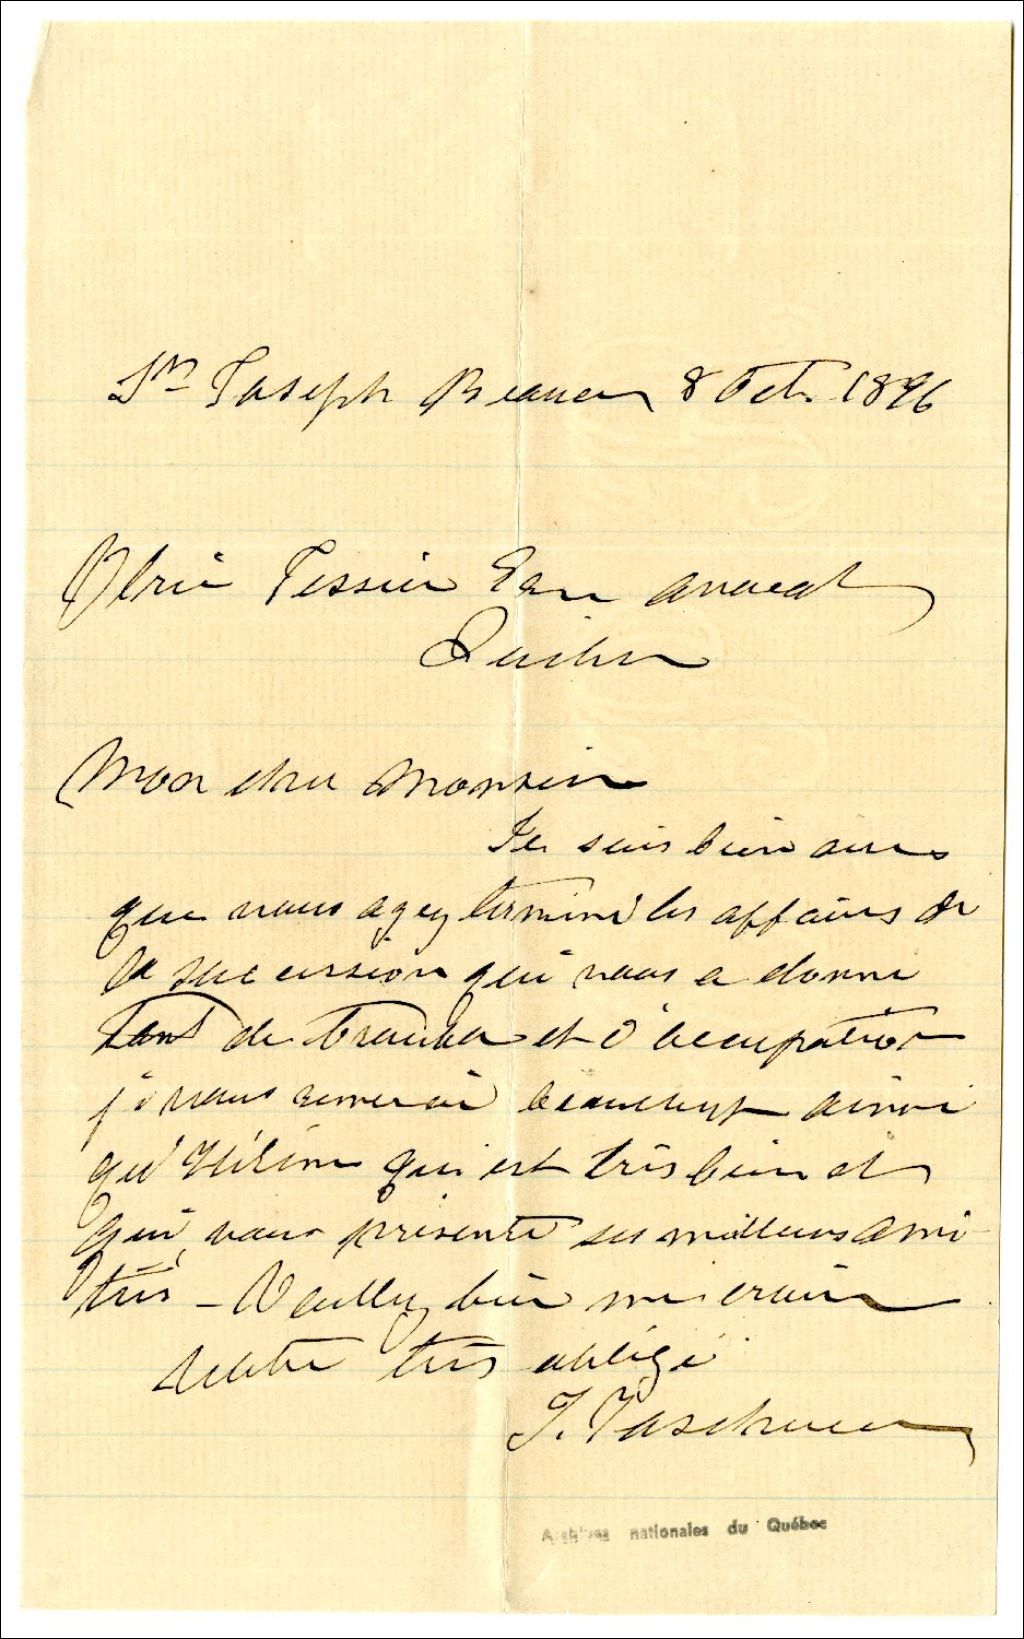 St Joseph Beauce 8 Oct. 1896
Ulric Tessier Ecr avocat
Québec
Mon cher Monsieur
Je suis bien aise
que vous ayez terminé les affaires de
la succession qui vous a donné
tant de trouble et d'occupation
je vous remercie beaucoup ainsi
qu' qui est très bien et
qui vous présente ses meilleurs ami
tiés - Veuillez bien me croire
Votre très obligé
J. Taschereau
Archives nationales du Québec